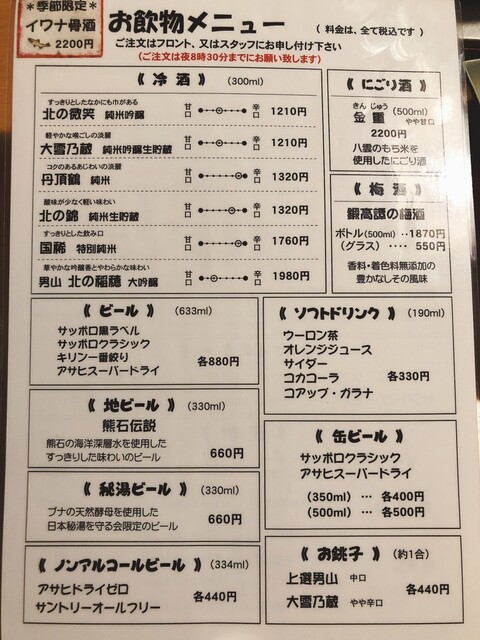 ＊季節限定＊
イワナ骨酒
2200円
お飲物メニュー
（ 料金は、全て税込です ）
ご注文はフロント、又はスタッフにお申し付け下さい
(ご注文は夜8時30分までにお願い致します)
《 冷 酒 》 (300ml)
すっきりとしたなかにも巾がある
北の微笑 純米吟醸 甘口 辛口 1210円
軽やかな喉ごしの淡麗
大雪乃蔵 純米吟醸生貯蔵 甘口 辛口 1210円
コクのあるあじわいの淡麗
丹頂鶴 純米 甘口 辛口 1320円
酸味が少なく軽い味わい
北の錦 純米生貯蔵 甘口 辛口 1320円
すっきりした飲み口
国稀 特別純米 甘口 辛口 1760円
華やかな吟醸香とやわらかな味わい
男山 北の稲穂 大吟醸 甘口 辛口 1980円
《 にごり酒 》
きん じゅう
金 重 (500ml)
やや甘口
2200円
八雲のもち米を
使用したにごり酒
《 梅 酒 》
鍛高譚の梅酒
ボトル(500ml) ‥1870円
（グラス） ‥‥ 550円
香料・着色料無添加の
豊かなしその風味
《 ビール 》 (633ml)
サッポロ黒ラベル
サッポロクラシック
キリン一番絞り
アサヒスーパードライ
各880円
《 ソフトドリンク 》 (190ml)
ウーロン茶
オレンジジュース
サイダー
コカコーラ
コアップ・ガラナ
各330円
《 地ビール 》 (330ml)
熊石伝説
熊石の海洋深層水を使用した
すっきりした味わいのビール
660円
《 缶ビール 》
サッポロクラシック
アサヒスーパードライ
(350ml) … 各400円
(500ml) … 各500円
《 秘湯ビール 》 (330ml)
ブナの天然酵母を使用した
日本秘湯を守る会限定のビール
660円
《 ノンアルコールビール 》 (334ml)
アサヒドライゼロ
サントリーオールフリー
各440円
《 お銚子 》 (約1合)
上選男山 中口
大雪乃蔵 やや辛口
各440円